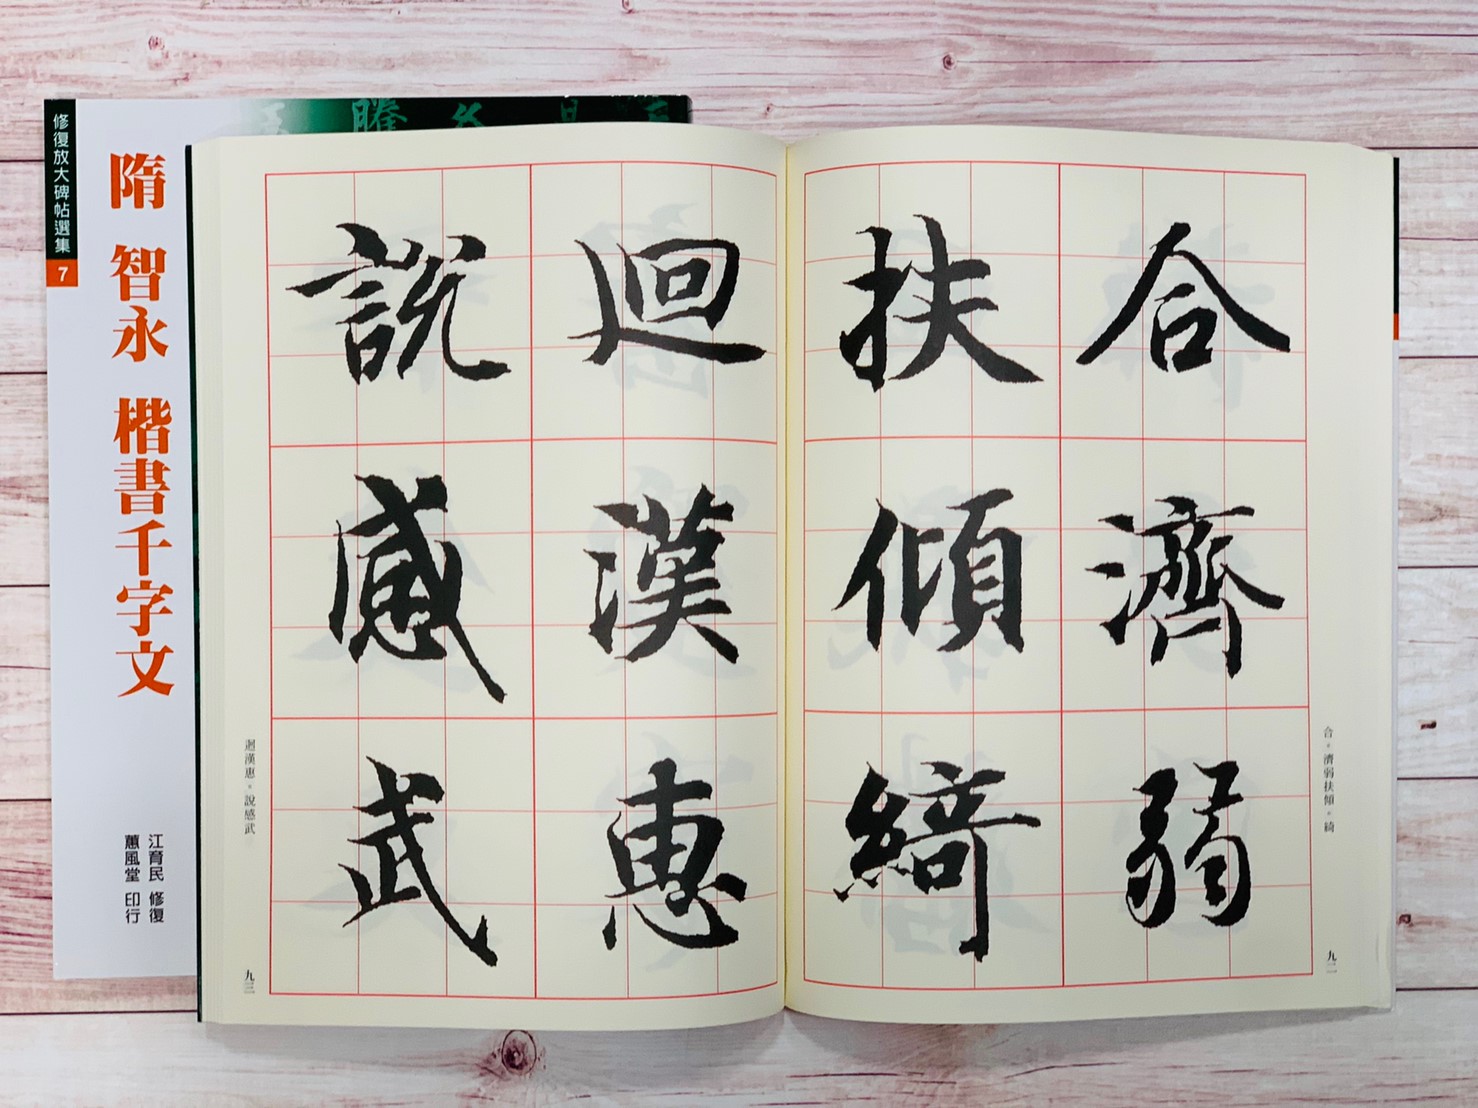 修復放大碑帖選集
7
隋 智永 楷書千字文
江育民 修復
蕙風堂 印行
合濟弱
扶傾綺
迴漢惠
說感武
合。濟弱扶傾。綺
九二
迴漢惠。說感武
九三